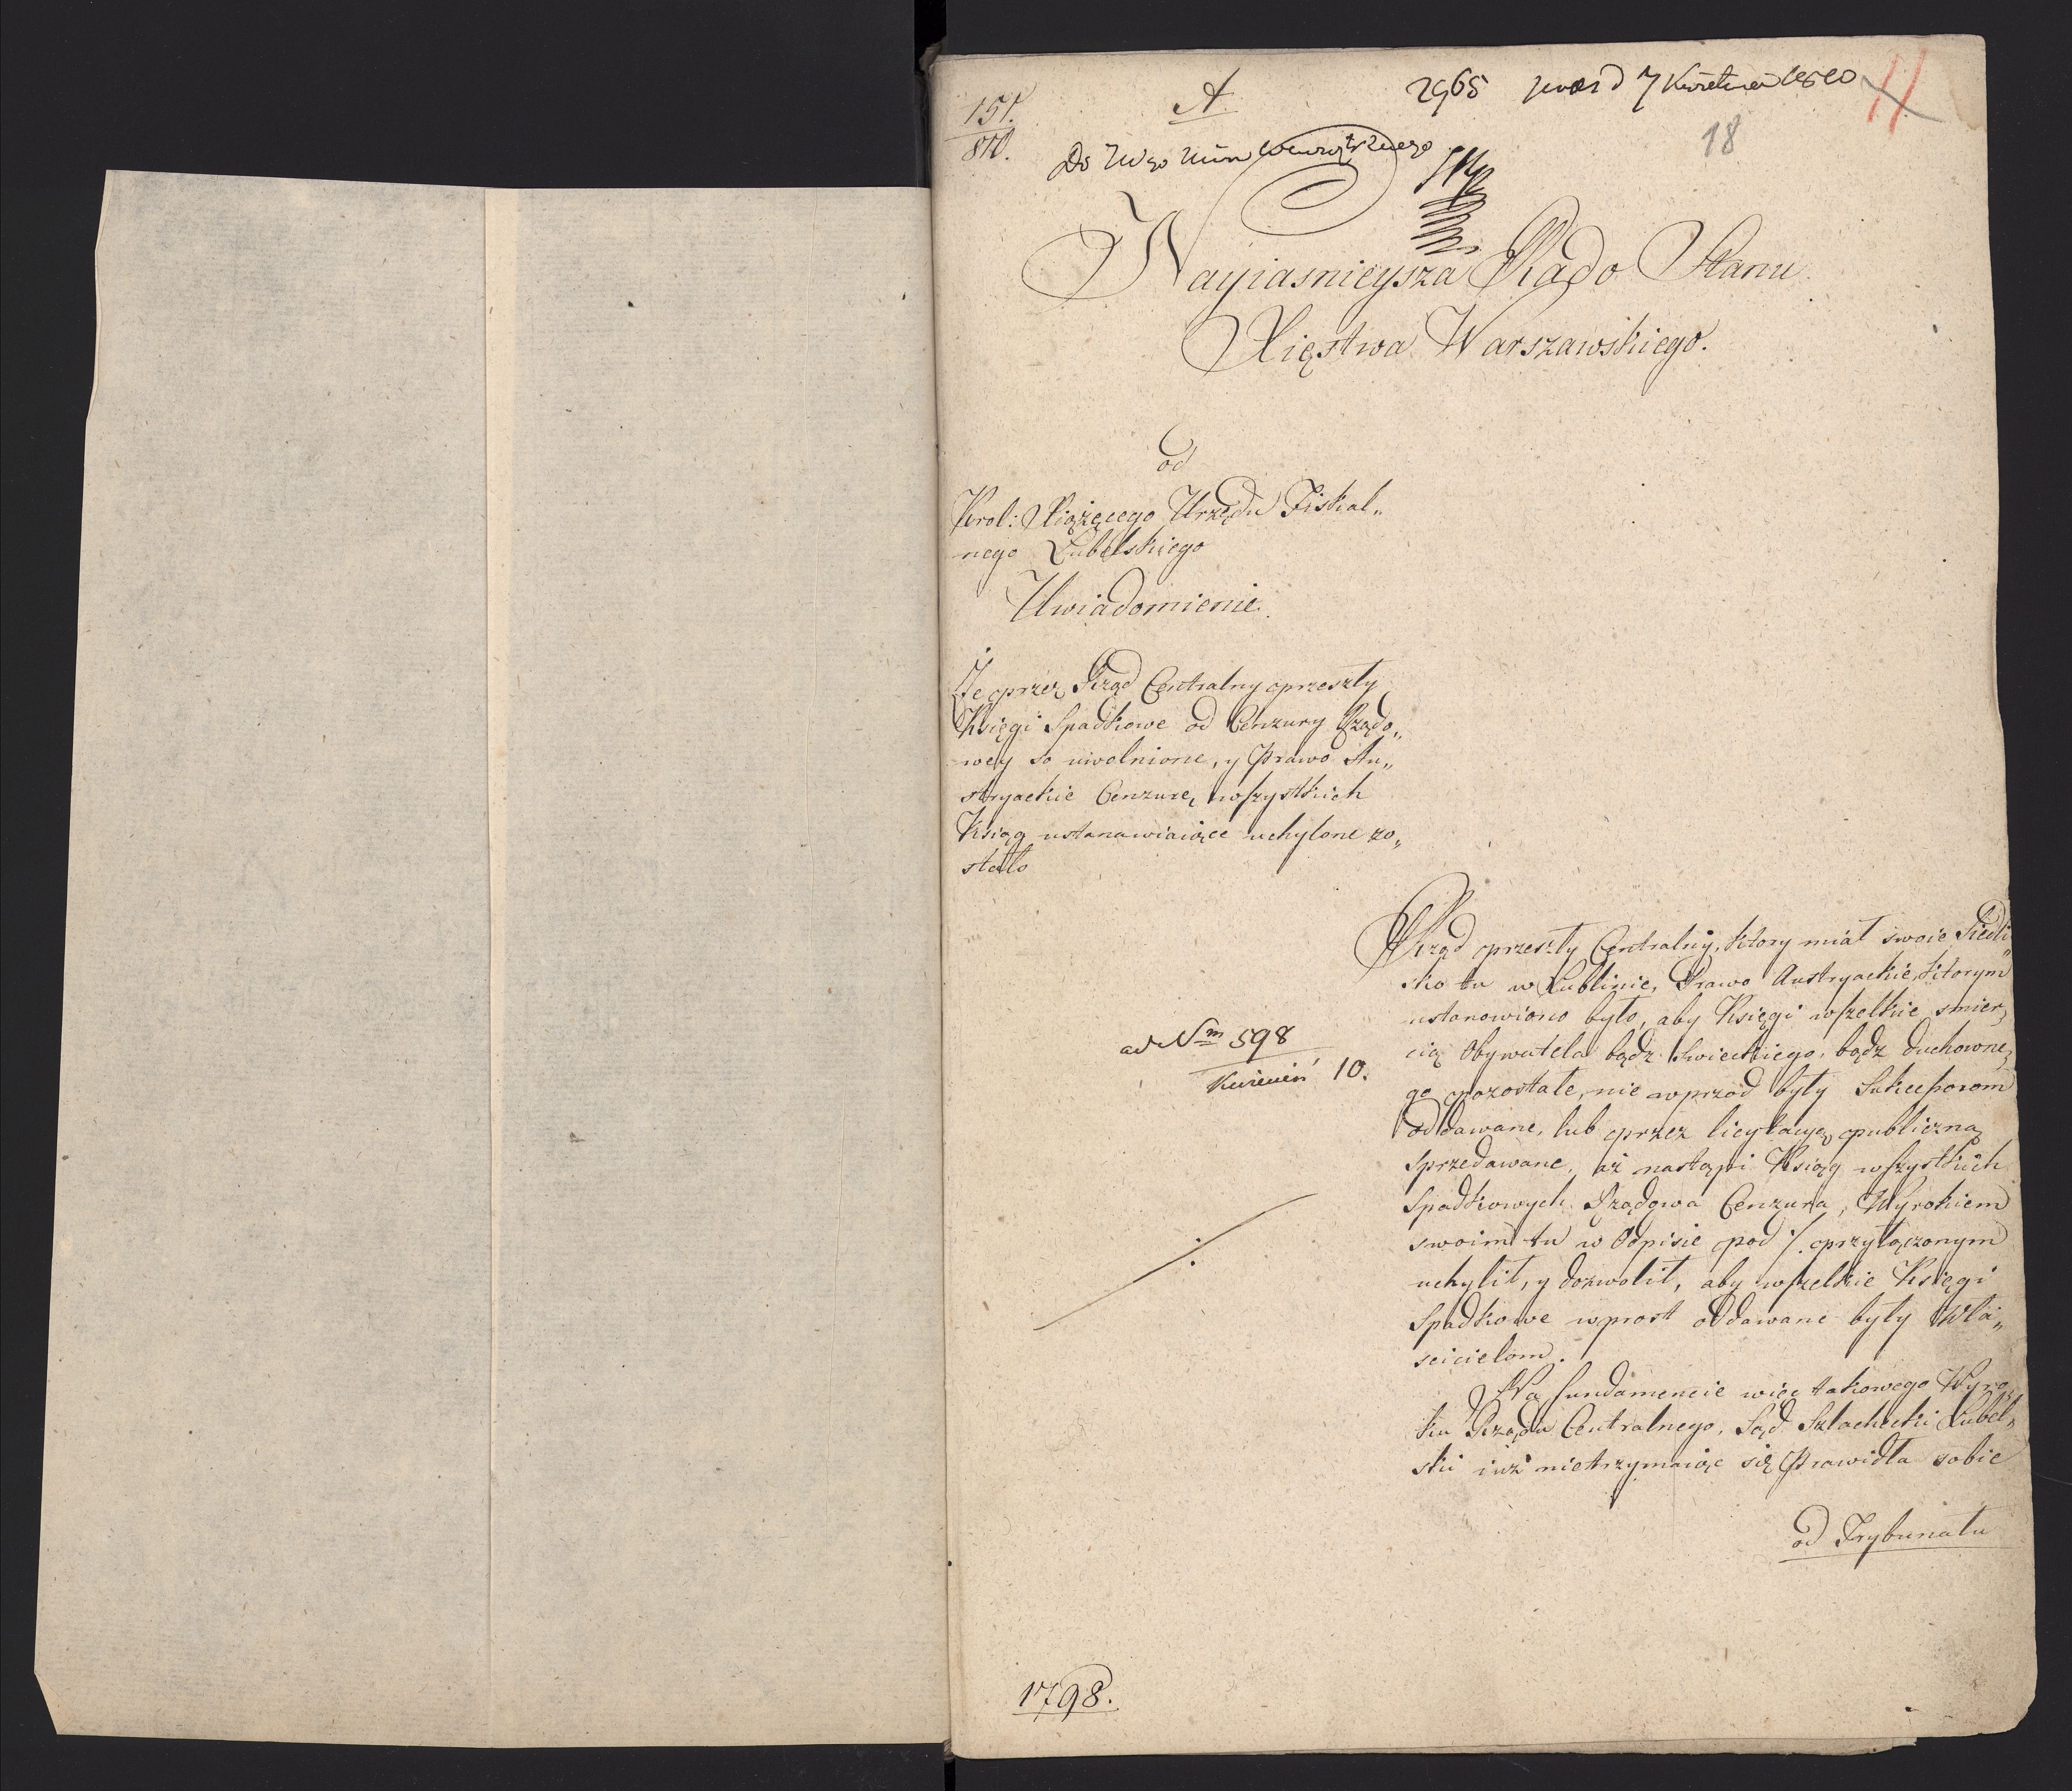 151.
810.
A
2965 7 Kwietnia 1810
11
18
Do Min Wewnętrznego
Nayiasnieysza Rado Stanu
Xięstwa Warszawskiego.
od
Krol: Xiążęcego Urzędu Fiskal„
nego Lubelskiego
Uwiadomienie.
Że przez Rząd Centralny przeszły
Księgi Spadkowe od Cenzury Rządo„
wey so uwolnione, y Prawo Au„
stryackie Cenzurę wszystkich
Ksiąg ustanawiaiące uchylone zo„
stało
Rząd przeszły Centralny, ktory miał swoie Siedli„
sko tu w Lublinie, Prawo Austryackie, ktorym
ustanowiono było, aby Księgi wszelkie smier„
cią Obywatela bądz Swieckiego, bądz duchowne„
go pozostałe, nie wprzod były Sukcessorom
oddawane, lub przez licytacyą publiczną
sprzedawane, aż nastąpi Ksiąg wszystkich
Spadkowych Rządowa Cenzura, Wyrokiem
swoim tu w Odpisie pod ./. przyłączonym
uchylił, y dozwolił, aby wszelkie Księgi
Spadkowe wprost oddawane były Wła„
scicielom.
Na fundamencie więc takowego Wyro„
ku Rządu Centralnego, Sąd Szlachecki Lubel„
ski iuż nietrzymaiąc się Prawidła sobie
od Trybunału
ad Nm 598
Kwiecień 10.
./.
1798.